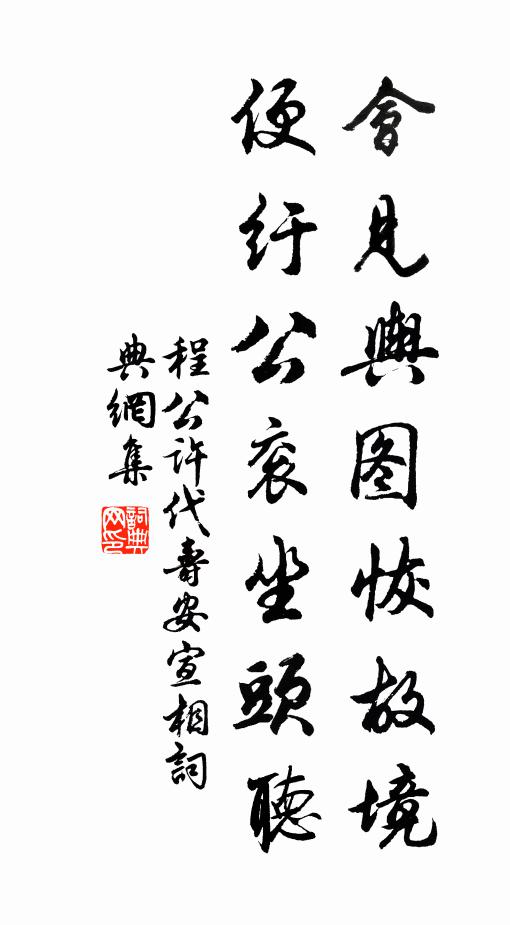 會見輿图恢故境
便纡公衮坐頭聽
程公許代壽安宣相詞
典網集
詞典网印